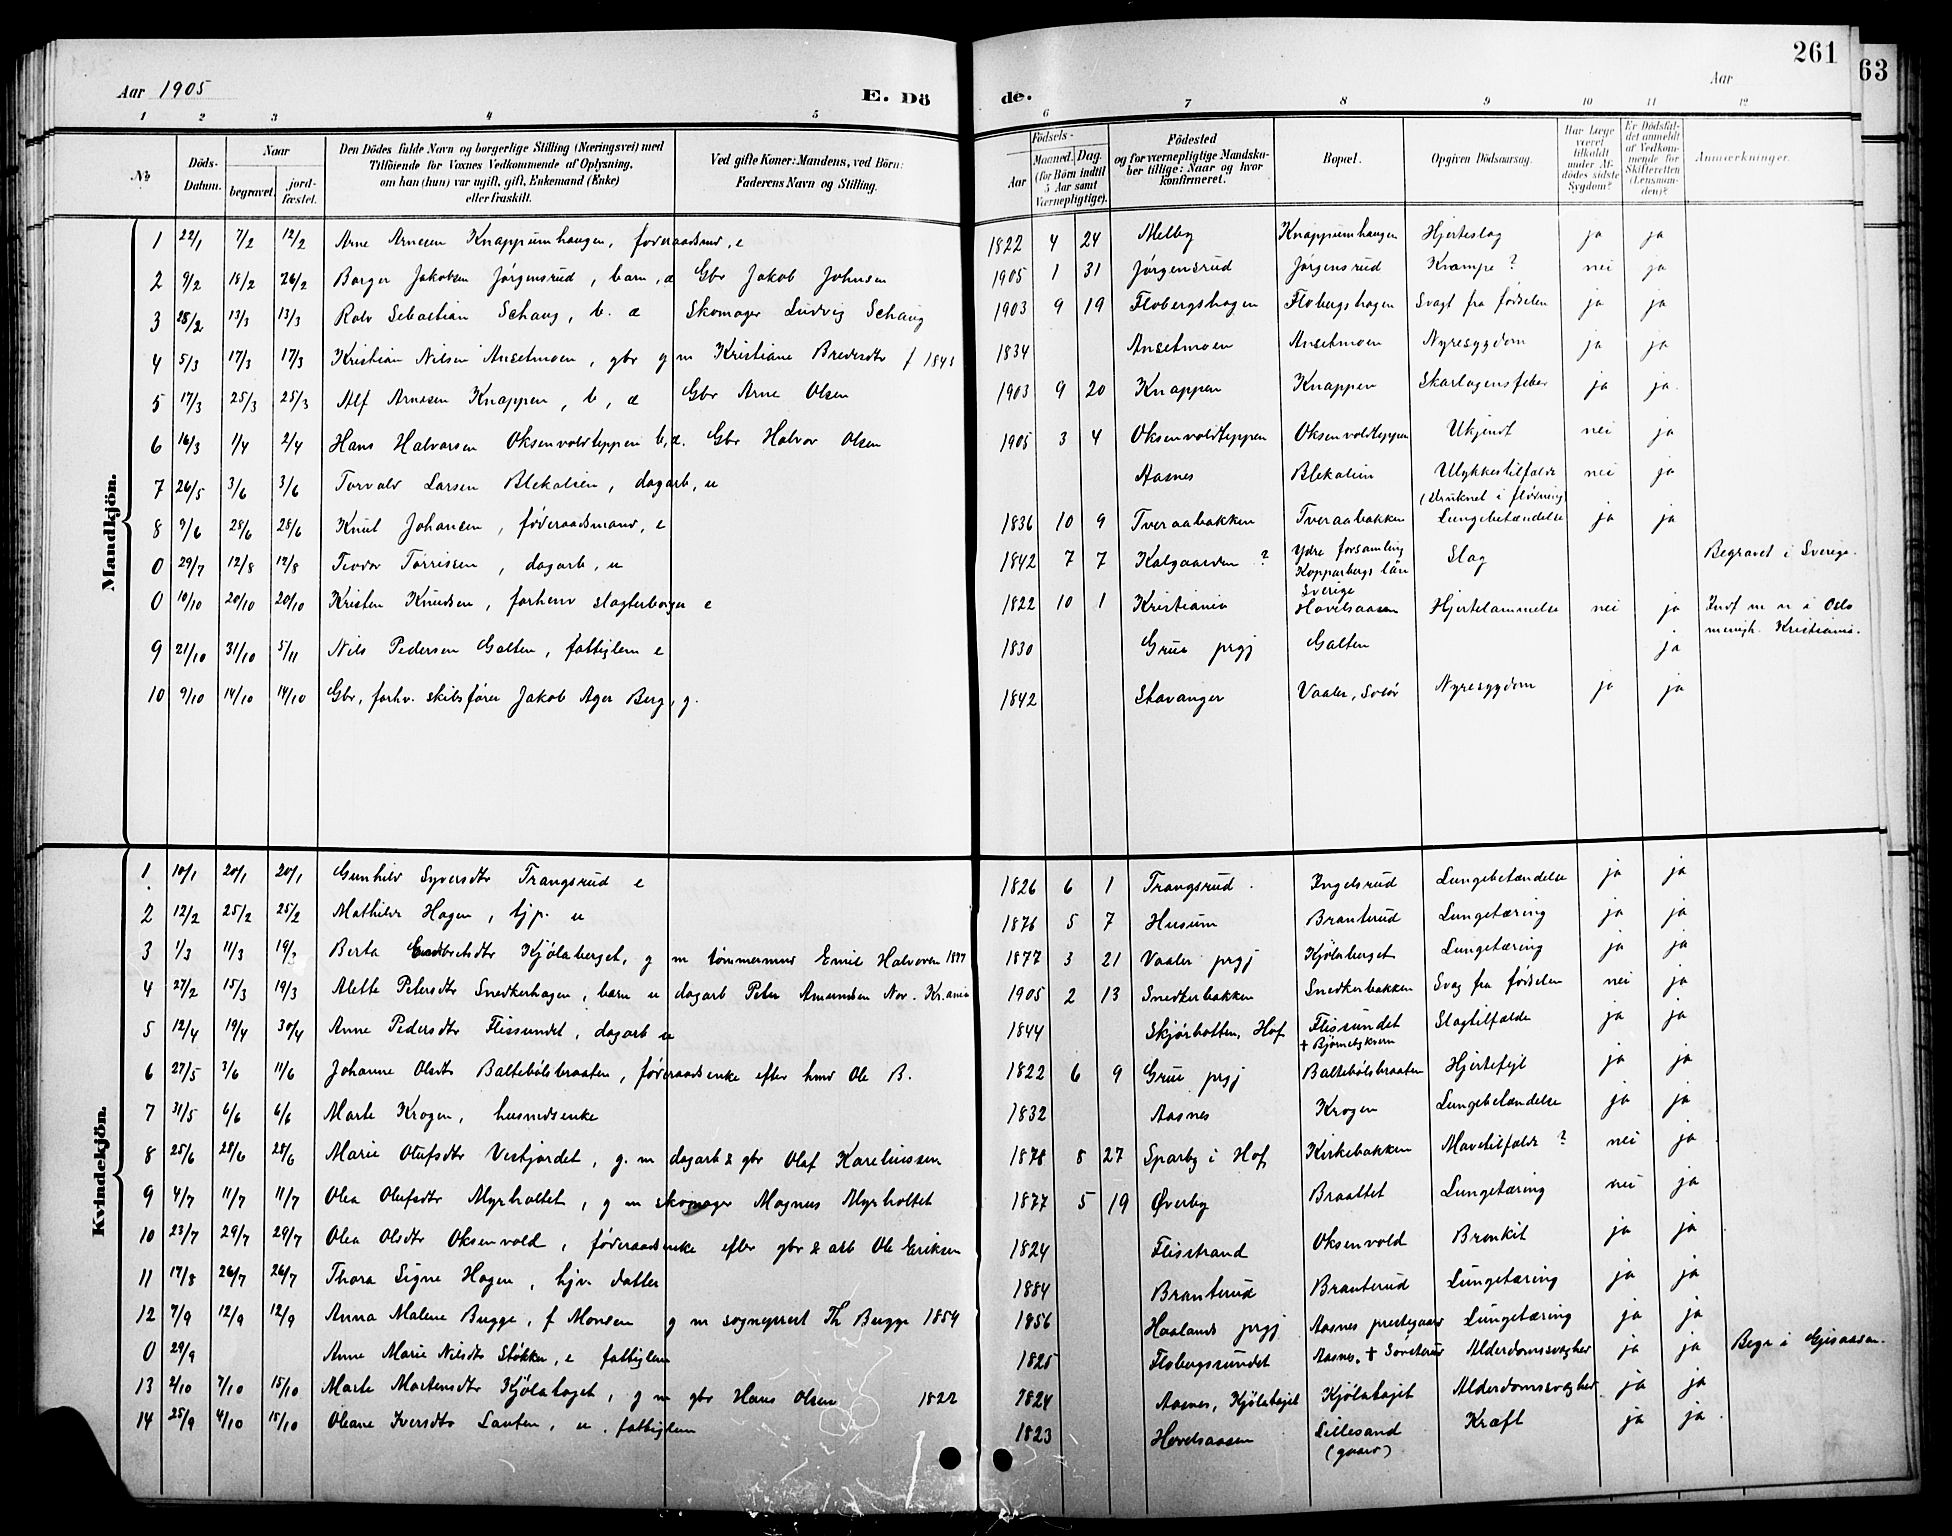 261
63
Aar 1905
E. Dö
de.
Aar
1 2 3 4 5 6 7 8 9 10 11 12
No Döds-Datum. Naar begravet. jord-fæstet. Den Dödes fulde Navn og borgerlige Stilling (Næringsvei) med Tilföiende for Voxnes Vedkommende af Oplysning, om han (hun) var ugift, gift, Enkemand (Enke) eller fraskilt. Ved gifte Koner: Mandens, ved Börn: Faderens Navn og Stilling. Födsels- Aar Maaned. Dag. (for Börn indtil 5 Aar samt Værnepligtige). Födested og for værnepligtige Mandskaber tillige: Naar og hvor konfirmeret. Bopæl. Opgiven Dödsaarsag. Har Læge været tilkaldt under Afdödes sidste Sygdom? Er Dödsfaldet anmeldt af Vedkommende for Skifteretten (Lensmanden)? Anmærkninger.
Mandkjön.
1 22/1 7/2 12/2 Arne Arnesen Knappumhaugen, føderaadsmd, e 1822 4 24 Melby Knappumhaugen Hjerteslag ja ja
2 9/2 18/2 26/2 Borger Jakobsen Jørgensrud, barn, æ Gbr Jakob Johnsen 1905 1 31 Jørgensrud Jørgensrud Krampe? nei ja
3 28/2 13/3 13/3 Rolv Sebastian Schaug, b. æ Skomager Ludvig Schaug 1903 9 19 Flobergshagen Flobergshagen Svagt fra fødselen ja ja
4 5/3 17/3 17/3 Kristian Nilsen Ansetmoen, gbr g m Kristiane Bredesdtr f 1843 1834 Ansetmoen Ansetmoen Nyresygdom ja ja
5 17/3 25/3 25/3 Alf Arnesen Knappen, b, æ Gbr Arne Olsen 1903 9 20 Knappen Knappen Skarlagensfeber ja ja.
6 16/3 1/4 2/4 Hans Halvorsen Oksenvoldteppen b, æ. Gbr Halvor Olsen 1905 3 4 Oksenvoldteppen Oksenvoldteppen Ukjendt nei ja
7 26/5 3/6 3/6 Torvald Larsen Blekalien, dagarb, u Aasnes Blekalien Ulykkestilfælde nei ja
(druknet i fløtning)
8 9/6 28/6 28/6 Knut Johansen, føderaadsmand, e 1836 10 9 Tveraabakken Tveraabakken Lungebetændelse ja ja
0 29/7 12/8 12/8 Teodor Tørrissen, dagarb, u 1842 7 7 Kalgaarden? Ydre forsamling Kopparbergs län Sverige Slag Begravet i Sverige.
0 10/10 20/10 20/10 Kristen Knudsen, forhenv slagterborger e 1822 10 1 Kristiania Hovelsaasen Hjertelammelse nei ja Indf m n i Oslo
menigh. Kristiania.
9 21/10 31/10 5/11 Nils Pedersen Galten, fattiglem e 1830 Grue prgj Galten ja
10 9/10 14/10 14/10 Gbr, forhv. skibsfører Jakob Ager Berg, g. 1842 Stavanger Vaaler, Solør Nyresygdom ja ja
Kvindekjön.
1 10/1 20/1 20/1 Gunhild Syversdtr Trangsrud e 1826 6 1 Trangsrud. Ingelsrud Lungebetændelse ja ja
2 12/2 25/2 25/2 Mathilde Hagen, tjp. u 1876 5 7 Husum Branterud Lungetæring ja ja
3 1/3 11/3 19/3 Berta Embretsdtr Kjølaberget, g m tømmermand Emil Halvorsen 1877 1877 3 21 Vaaler prgj Kjølaberget Lungetæring ja ja
4 27/2 15/3 19/3 Alette Petersdtr Snedkerhagen, barn u dagarb Peter Amundsen Nor. Kr.ania 1905 2 13 Snedkerbakken Snedkerbakken Svag fra fødselen nei ja
5 12/4 19/4 30/4 Anne Pedersdtr Flissundet, dagarb u 1844 Skjørbotten, Hof Flissundet Slagtilfælde ja ja
+ Bjørnebykvern
6 27/5 3/6 11/6 Johanne Olsdtr Baltebølsbraaten, føderaadsenke efter hmd Ole B. 1822 6 9 Grue prgj Baltebølsbraaten Hjertefeil ja ja
7 31/5 6/6 6/6 Marte Krogen, husmdsenke 1832 Aasnes Krogen Lungebetændelse ja ja
8 25/6 28/6 28/6 Marie Olufsdtr Vestjordet, g. m dagarb & gbr Olaf Kareliussen 1878 8 27 Sparby i Hof Kirkebakken Mavetilfælde? nei ja
9 4/7 11/7 11/7 Olea Olufsdtr Myrholtet, g m skomager Magnus Myrholtet 1877 5 19 Øverby Braattet Lungetæring nei ja
10 23/7 29/7 29/7 Olea Olsdtr Oksenvold, føderaadsenke efter gbr & arb Ole Eriksen 1824 Flisstrand Oksenvold Bronkit ja ja
11 17/8 26/7 26/7 Thora Signe Hagen, hjv. datter 1884 Branterud Branterud Lungetæring ja ja
12 7/9 12/9 12/9 Anna Malene Bugge, f Monsen g m sogneprest Th Bugge 1854 1856 Haalands prgj Aasnes prestegaard Lungetæring ja ja
0 29/9 Anne Marie Nilsdtr Støkken, e fattiglem 1825 Flobergssundet Aasnes, + Sorterud Alderdomssvaghed ja ja Begr i Gjesaasen.
13 2/10 7/10 15/10 Marte Mortensdtr Kjølahøget, g m gbr Hans Olsen 1822 1824 Aasnes, Kjølahøjet Kjølahøjet Alderdomssvaghed ja ja
14 25/9 4/10 15/10 Oleane Iversdtr Lauten, u. fattiglem 1823 Hovelsaasen Lillesand Kræft ja ja
(gaard)